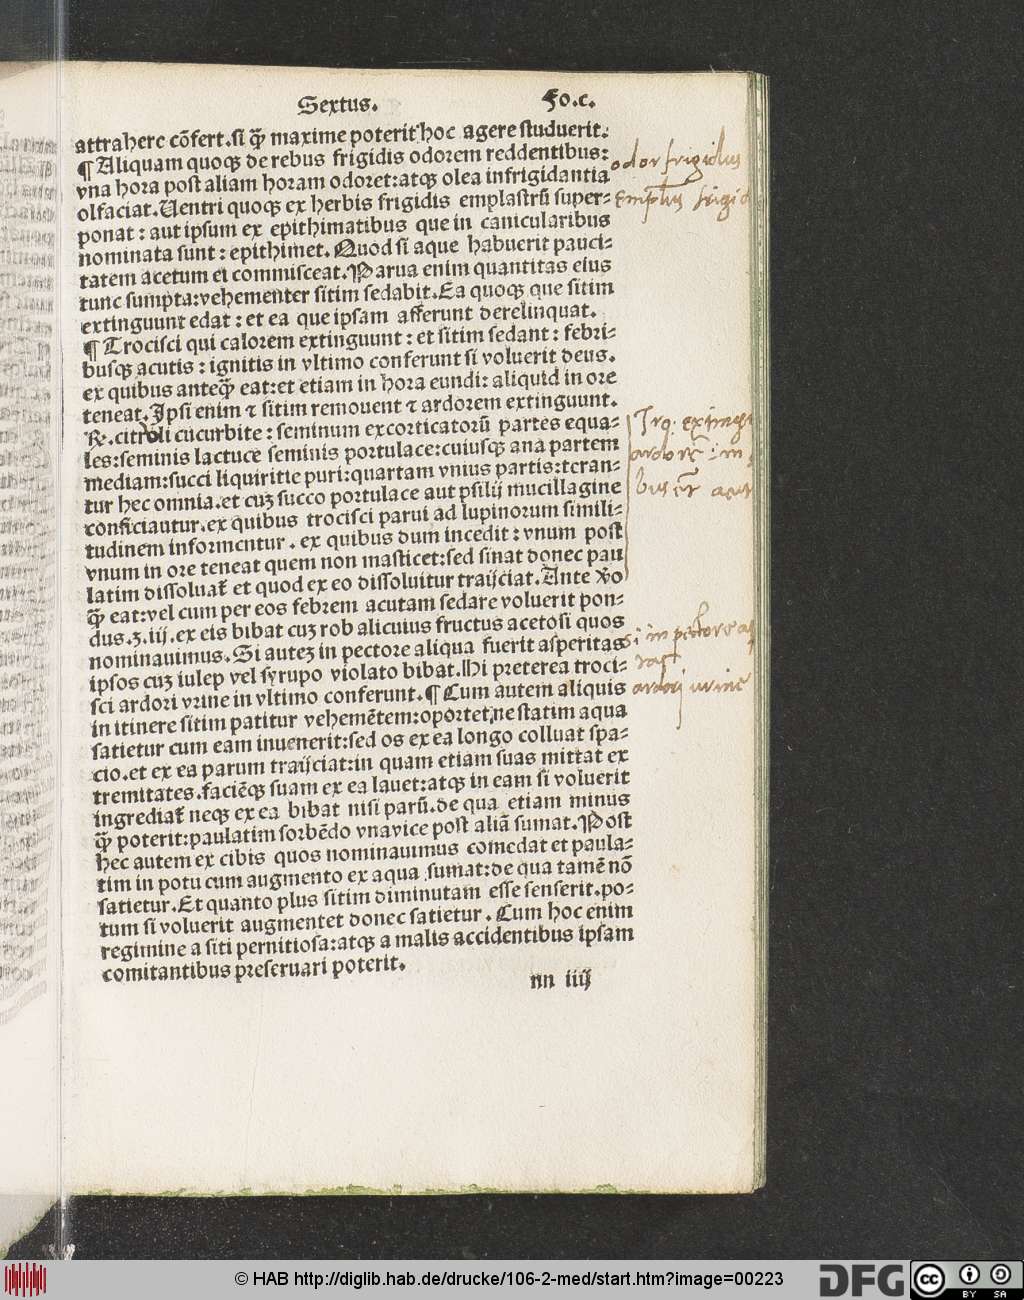 Sextus. 50.c.
attrahere cõfert.si q̃ maxime poterit hoc agere studuerit.
¶ Aliquam quoqꝫ de rebus frigidis odorem reddentibus:
vna hora post aliam horam odoret:atqꝫ olea infrigidantia
olfaciat.Uentri quoqꝫ ex herbis frigidis emplastrũ super-
ponat : aut ipsum ex epithimatibus que in canicularibus
nominata sunt : epithimet. Quod si aque habuerit pauci-
tatem acetum ei commisceat.Parua enim quantitas eius
tunc sumpta:vehementer sitim sedabit.Ea quoqꝫ que sitim
extinguunt edat : et ea que ipsam afferunt derelinquat.
¶ Trocisci qui calorem extinguunt : et sitim sedant : febri-
busqꝫ acutis : ignitis in vltimo conferunt si voluerit deus.
ex quibus anteq̃ eat:et etiam in hora eundi: aliquid in ore
teneat.Ipsi enim ⁊ sitim remouent ⁊ ardorem extinguunt.
℞. citroli cucurbite : seminum excorticatorũ partes equa-
les:seminis lactuce seminis portulace:cuiusqꝫ ana partem
mediam:succi liquiritie puri:quartam vnius partis:teran-
tur hec omnia.et cuꝫ succo portulace aut psilij mucillagine
conficiantur.ex quibus trocisci parui ad lupinorum simili-
tudinem informentur . ex quibus dum incedit : vnum post
vnum in ore teneat quem non masticet:sed sinat donec pau
latim dissoluat̃ et quod ex eo dissoluitur traijciat.Ante ṽo
q̃ eat:vel cum per eos febrem acutam sedare voluerit pon-
dus.ʒ.iij.ex eis bibat cuꝫ rob alicuius fructus acetosi quos
nominauimus.Si auteꝫ in pectore aliqua fuerit asperitas
ipsos cuꝫ iulep vel syrupo violato bibat.Hi preterea troci-
sci ardori vrine in vltimo conferunt.¶ Cum autem aliquis
in itinere sitim patitur vehemẽtem:oportet,ne statim aqua
satietur cum eam inuenerit:sed os ex ea longo colluat spa-
cio.et ex ea parum traijciat:in quam etiam suas mittat ex
tremitates.faciẽqꝫ suam ex ea lauet:atqꝫ in eam si voluerit
ingrediat̃ neqꝫ ex ea bibat nisi parũ.de qua etiam minus
q̃ poterit:paulatim sorbẽdo vnavice post aliã sumat.Post
hec autem ex cibis quos nominauimus comedat et paula-
tim in potu cum augmento ex aqua sumat:de qua tamẽ nõ
satietur.Et quanto plus sitim diminutam esse senserit.po-
tum si voluerit augmentet donec satietur . Cum hoc enim
regimine a siti pernitiosa:atqꝫ a malis accidentibus ipsam
comitantibus preseruari poterit.
nn iiij
odor frigidus
Emplũs frigid
ardorẽ : in
si in pectore as
ardorj urine
© HAB http://diglib.hab.de/drucke/106-2-med/start.htm?image=00223
DFG
cc BY SA